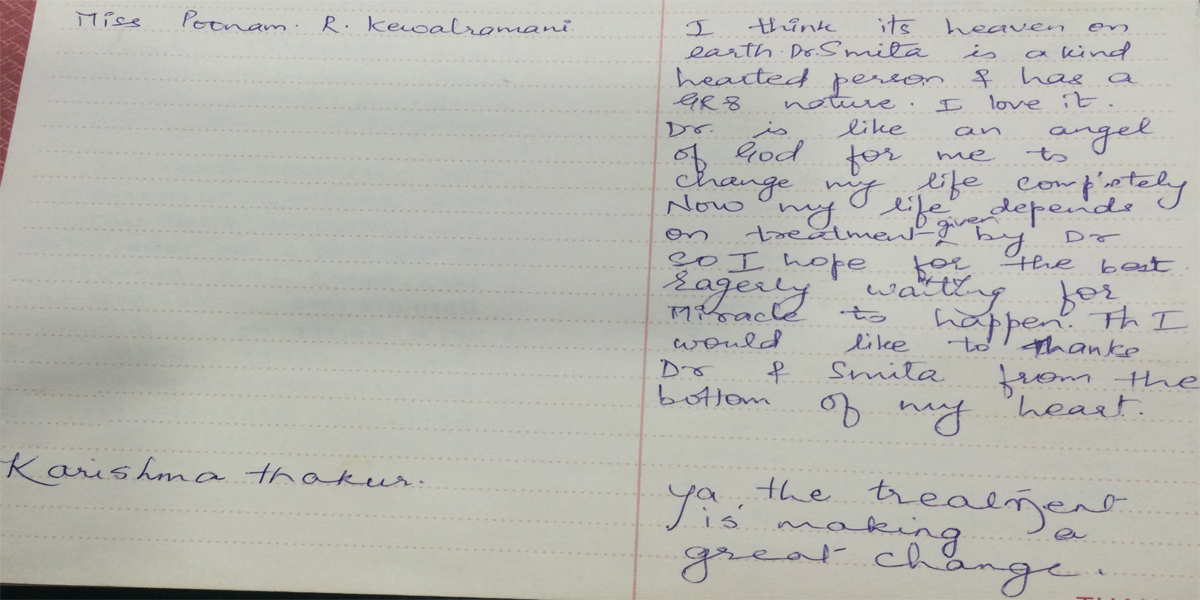 Miss Poonam. R. Kewalramani
I think its heaven on
earth Dr. Smita is a kind
hearted person & has a
GR8 nature. I love it.
Dr. is like an angel
of God for me to
change my life completely
Now my life depends
on treatment given by Dr
so I hope for the best
Eagerly waiting for
Miracle to happen. Th I
would like to thanks
Dr & Smita from the
bottom of my heart.
Karishma thakur.
ya the treatment
is making a
great change.